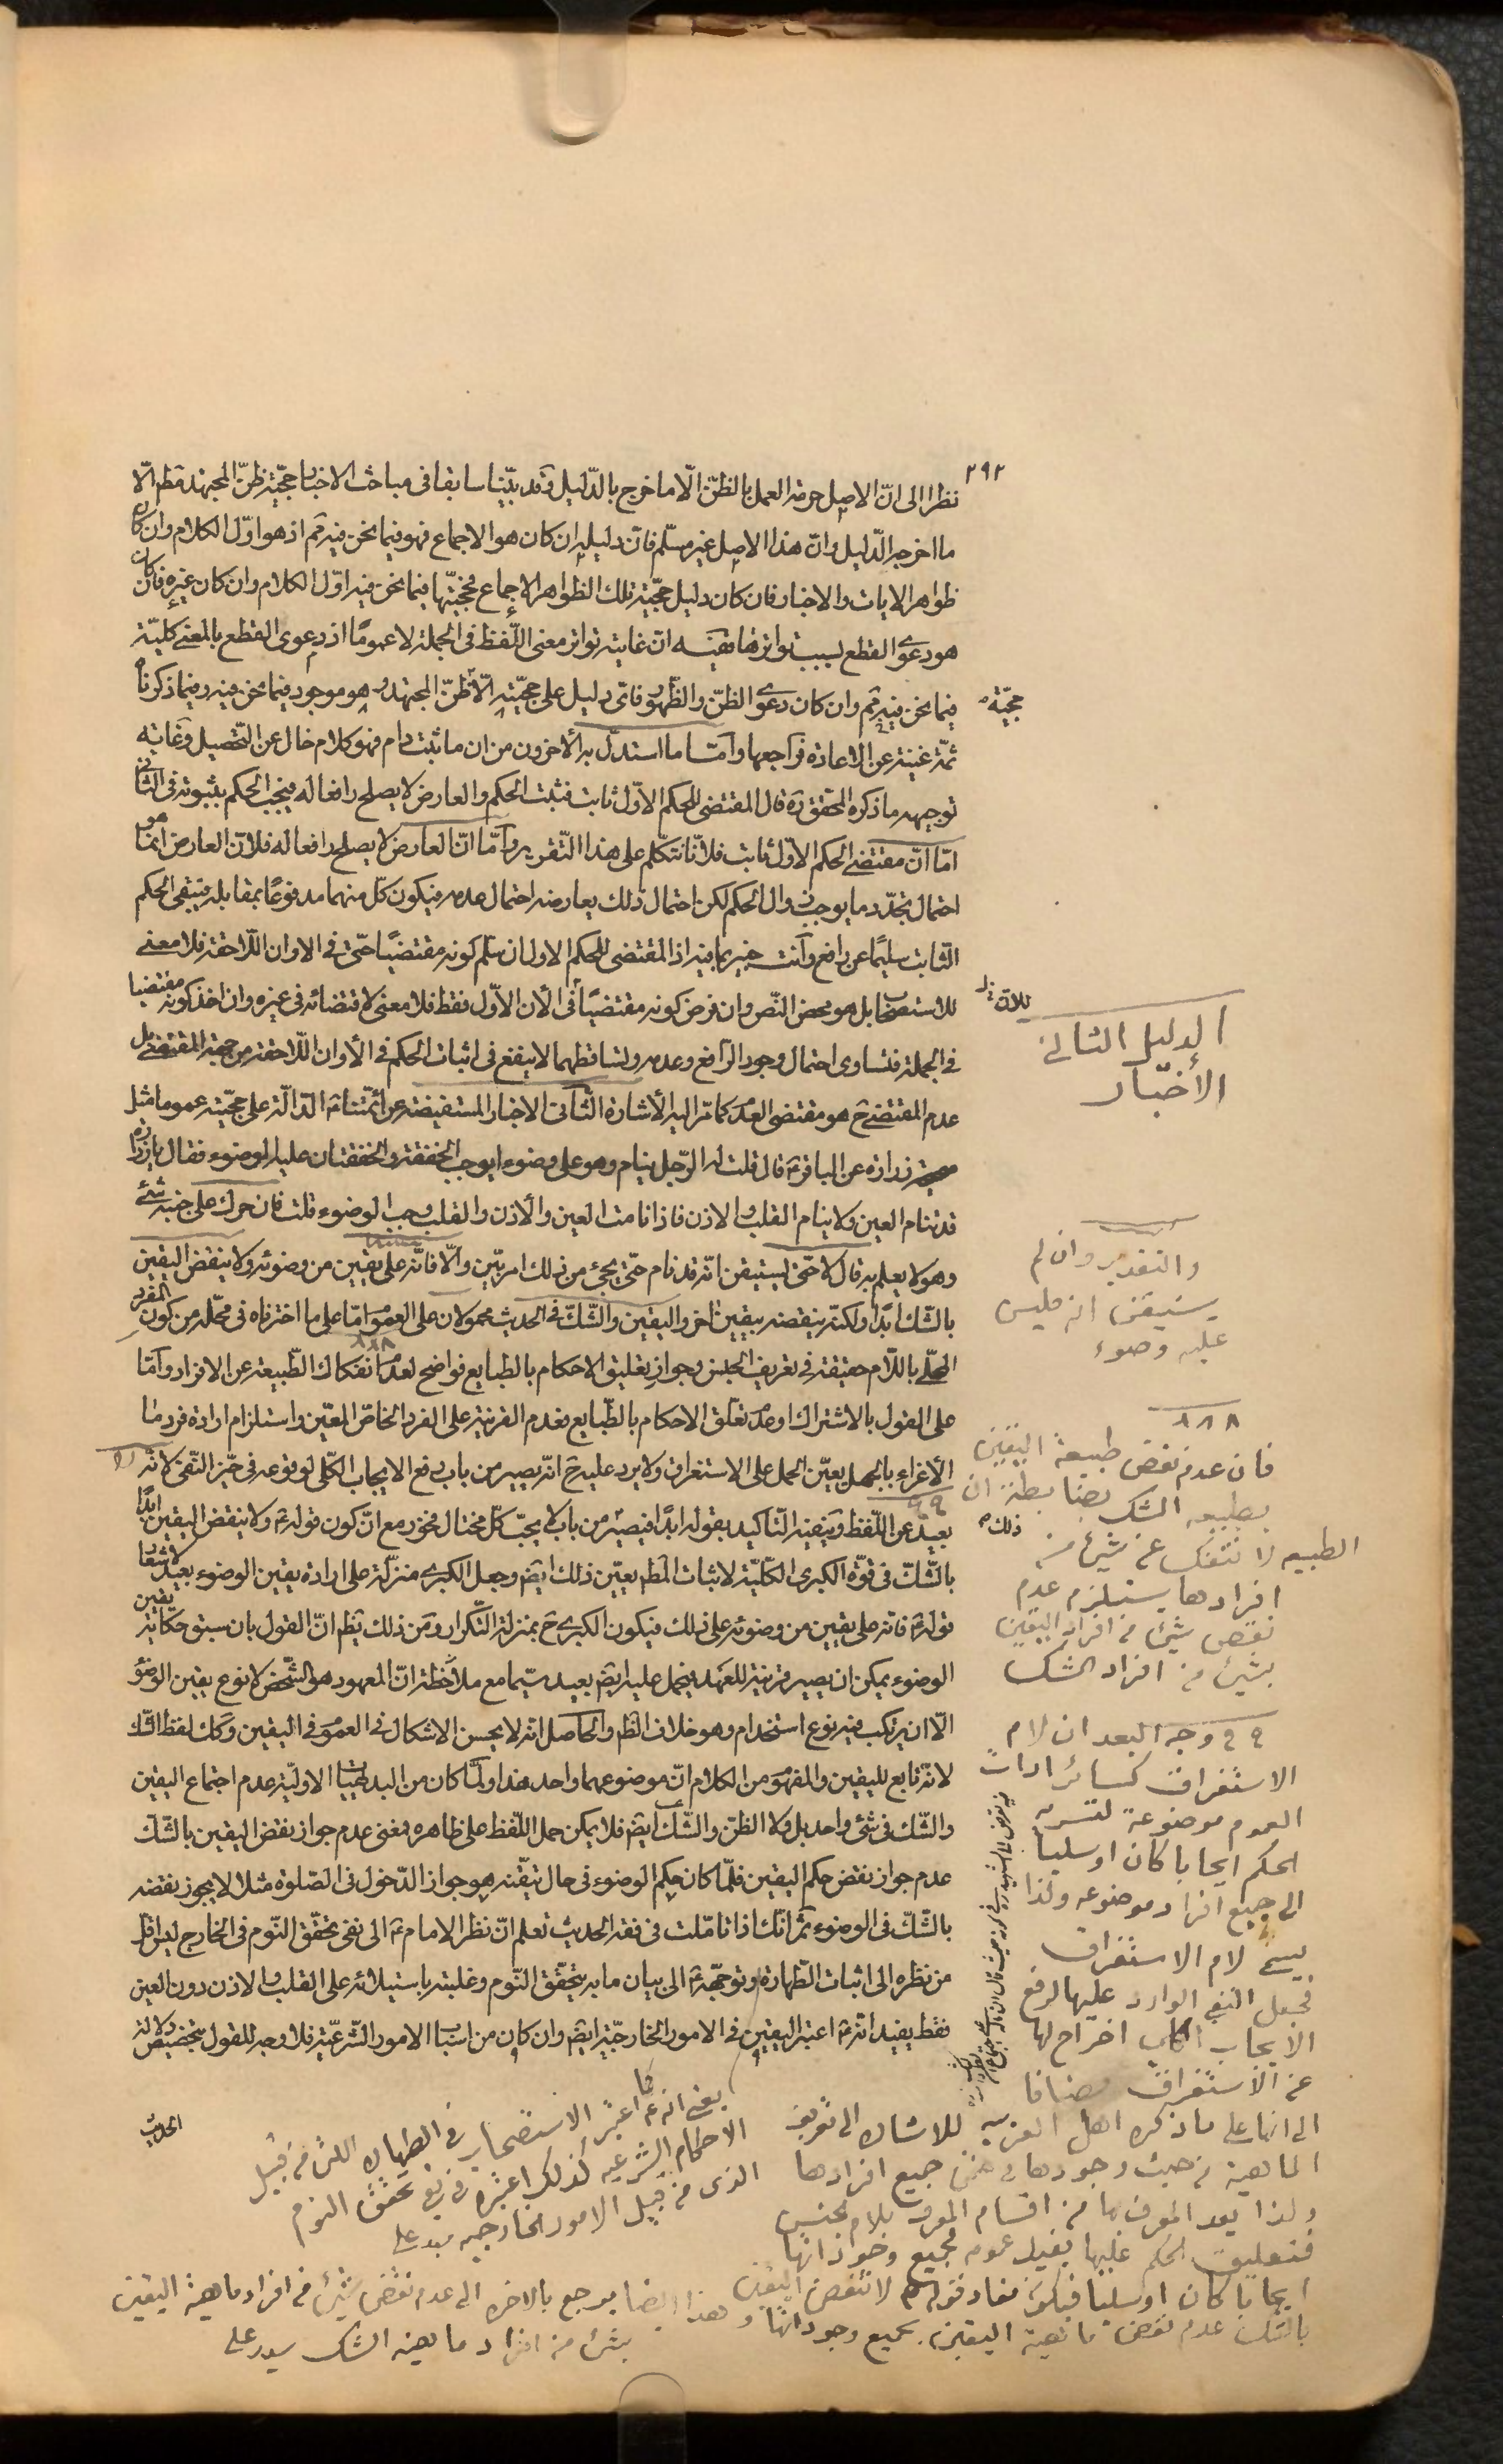 ٢٩٢
نظرا الى انّ الاصل حرمة العمل بالظنّ الّا ما خرج بالدّليل وقد بيّنّا سابقا فى مباحث الاخبار حجّية ظنّ المجتهد مطم الّا
ما اخرجه الدّليل وانّ هذا الاصل غير مسلّم فانّ دليله ان كان هو الاجماع فهو فيما نحن فيه مم اذ هو اوّل الكلام وان كان
ظواهر الايات والاخبار فان كان دليل حجّية تلك الظواهر الاجماع فحجيّتها فيما نحن فيه اوّل الكلام وان كان غيره فان كان
هو دعوى القطع لسبب تواترها ففيه انّ غايته تواتر معنى اللّفظ فى الجملة لا عموما اذ دعوى القطع بالمعنى كليّة
فيما نحن فيه مم وان كان دعوى الظنّ والظّهور فاىّ دليل على حجّيته الّا ظنّ المجتهد وهو موجود فيما نحن فيه وفيما ذكرنا
حجّية
ثمّة غنية عن الاعادة فراجعها وامّا ما استدلّ به الاخرون من ان ما ثبت دام فهو كلام خال عن التّحصيل وغاية
توجيهه ما ذكره المحقق ره قال المقتضى للحكم الاوّل ثابت فثبت الحكم والعارض لا يصلح رافعا له فيجب الحكم بثبوته فى الثانى
امّا انّ مقتضى الحكم الاوّل ثابت فلانّا نتكلّم على هذا التّقرير وامّا انّ العارض لا يصلح رافعا له فلانّ العارض انّما هو
احتمال تجدّد ما يوجب زوال الحكم لكن احتمال ذلك يعارضه احتمال عدمه فيكون كلّ منهما مدفوعا بمقابله فيبقى الحكم
الثّابت سليما عن رافع وانت خبير بما فيه اذ المقتضى للحكم الاول ان سلّم كونه مقتضيا حتّى فى الاوان اللّاحقة فلا معنى
للاستصحاب بل هو محض النّص وان فرض كونه مقتضيا فى الان الاوّل فقط فلا معنى لاقتضائه فى غيره وان اخذ كونه مقتضيا
فى الجملة فتساوى احتمال وجود الرّافع وعدمه وتساقطهما لا ينفع فى اثبات الحكم فى الأوان اللّاحقة من جهة المقتضى بل
عدم المقتضى ح هو مقتضى العدم كما مرّ اليه الأشارة الثّانى الاخبار المستفيضة عن ائمّتنا ع الدّالّة على حجّيته عموما مثل
صحيحة زرارة عن الباقر ع قال قلت له الرّجل ينام وهو على وضوء ايوجب الخفقة والخفقتان عليه الوضوء فقال يا زرارة
قد تنام العين ولا ينام القلب والاذن فاذا نامت العين والأذن والقلب وجب الوضوء قلت فان حرك على جنبه شئ
وهو لا يعلم به قال لا حتّى يستيقن انّه قد نام حتّى يجئ من ذلك امر بيّن والّا فانّه على يقين من وضوئه ولا ينقض اليقين
بالشّك ابدا ولكنّه ينقضه بيقين اخر واليقين والشّكّ فى الحديث محمولان على العموم امّا على ما اخترناه فى محلّه من كون المفرد
المحلّى باللّام حقيقة فى تعريف الجنس وجواز تعليق الاحكام بالطبايع فواضح لعدم انفكاك الطّبيعة عن الافراد وامّا
على القول بالاشتراك او عدم تعلّق الاحكام بالطّبايع فعدم القرينة على الفرد الخاصّ المعيّن واستلزام ارادة فرد ما
الأغراء بالجهل يعيّن الحمل على الاستغراق ولا يرد عليه ح انّه يصير من باب رفع الايجاب الكلّى لوقوعه فى حيّز النّفى لانّه
بعيد عن اللّفظ وينفيه التّاكيد بقوله ابدا فيصير من باب لا يحبّ كلّ مختال فخور مع انّ كون قوله ع ولا ينقض اليقين ابدا
بالشّكّ فى قوّة الكبرى الكلّية لاثبات المطم يعيّن ذلك ايضم وجعل الكبرى منزّلة على ارادة يقين الوضوء بعيد لاشعار
قوله ع فانه على يقين من وضوئه على ذلك فيكون الكبرى ح بمنزلة التّكرار ومن ذلك يظم انّ القول بان سبق حكاية يقين
الوضوء يمكن ان يصير قرينة للعهد فيحمل عليه ايضم بعيد سيّما مع ملاحظة انّ المعهود هو الشّخص لا نوع يقين الوضوء
الّا ان يرتكب فيه نوع استخدام وهو خلاف الظم والحاصل انه لا يحسن الاشكال فى العموم فى اليقين وكك لفظ الشّك
لانّه تابع لليقين والمفهوم من الكلام انّ موضوعهما واحد هذا ولمّا كان من البديهيّات الاوليّة عدم اجتماع اليقين
والشّك فى شئ واحد بل ولا الظنّ والشّك ايضم فلا يمكن حمل اللّفظ على ظاهره فمعنى عدم جواز نقض اليقين بالشّك
عدم جواز نقض حكم اليقين فلمّا كان حكم الوضوء فى حال تيقّنه هو جواز الدّخول فى الصّلوة مثلا لا يجوز نقضه
بالشّكّ فى الوضوء ثمّ انّك اذا تامّلت فى فقه الحديث تعلم انّ نظر الامام ع الى نفى تحقّق النّوم فى الخارج ليس اقل
من نظره الى اثبات الطّهارة وتوجّهه ع الى بيان ما به يتحقّق النّوم وغلبته باستيلائه على القلب والاذن دون العين
فقط يفيد انّه ع اعتبر اليقين فى الامور الخارجيّة ايضم وان كان من اسباب الامور الشّرعيّة فلا وجه للقول بتخصيص دلالة
الحديث
الدليل الثانى
الأخبار
والتقدير وان لم
يستيقن انه فليس
عليه وضوء
٨٨٨
فان عدم نقض طبيعة اليقين
بطبيعة الشك بضابطة ان
الطبيعه لا تنفك عن شئ من
افرادها يستلزم عدم
نقض شئ من افراد اليقين
بشئ من افراد الشك
٩٩ وجه البعد ان لام
الاستغراق كسائر ادات
العموم موضوعة لتسرية
الحكم ايجابا كان او سلبا
الى جميع افراد موضوعه ولذا
يسمى لام الاستغراق
فجعل النفى الوارد عليها لرفع
الايجاب الكلى اخراج لها
عن الاستغراق مضافا
الى انها على ما ذكره اهل العربيه للاشاره الى تعريف
الماهية من حيث وجودها فى ضمن جميع افرادها
ولذا يعد المعرف بها من اقسام المعرف بلام الجنس
فتعليق الحكم عليها يفيد عموم لجميع وجوداتها
ايجابا كان او سلبا فيكون مفاد قوله ع لا تنقض اليقين
بالشك عدم نقض ماهية اليقين بجميع وجوداتها وهذا ايضا يرجع بالاخره الى عدم نقض شئ من افراد ماهية اليقين
بشئ من افراد ماهية الشك
يعنى انه ع كما اعتبر الاستصحاب فى الطهاره التى من قبيل
الاحكام الشرعيه كذلك اعتبره فى نفى تحقق النوم
الذى من قبيل الامور الخارجيه